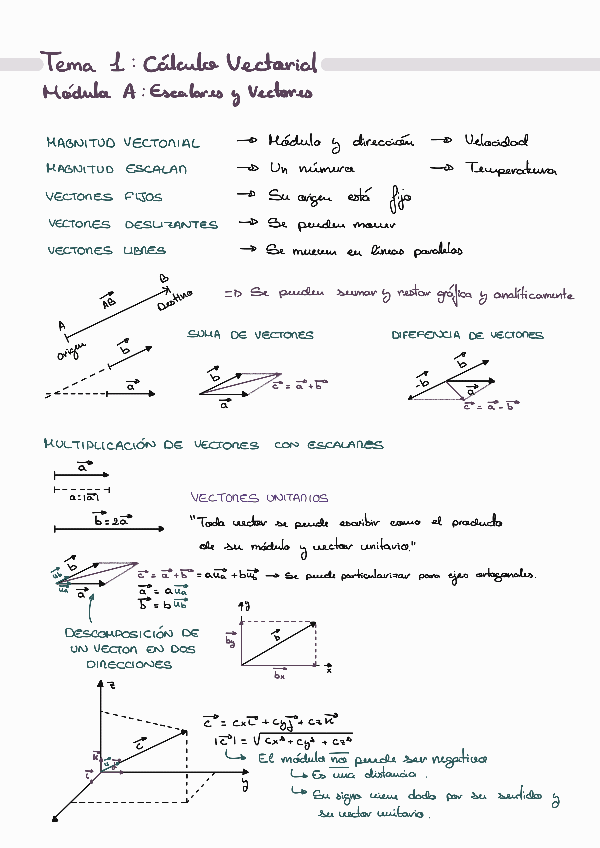 Tema 1: Cálculo Vectorial
Módulo A: Escalares y Vectores
MAGNITUD VECTORIAL → Módulo y dirección → Velocidad
MAGNITUD ESCALAR → Un número → Temperatura
VECTORES FIJOS → Su origen está fijo
VECTORES DESLIZANTES → Se pueden mover
VECTORES LIBRES → Se mueven en líneas paralelas
A AB B
origen Destino
=> Se pueden sumar y restar gráfica y analíticamente
SUMA DE VECTORES
DIFERENCIA DE VECTORES
b a
b a c = a + b
-b b a c = a - b
MULTIPLICACIÓN DE VECTORES CON ESCALARES
a
a=|a|
b=2a
VECTORES UNITARIOS
"Todo vector se puede escribir como el producto
de su módulo y vector unitario."
b a ub ua
c = a + b = aua + bub → Se puede particularizar para ejes ortogonales.
a = aua
b = bub
DESCOMPOSICIÓN DE
UN VECTOR EN DOS
DIRECCIONES
y by b bx x
z c k i y
c = cxi + cyj + czk
|c| = √cx² + cy² + cz²
El módulo no puede ser negativo
Es una distancia.
Su signo viene dado por su sentido y
su vector unitario.